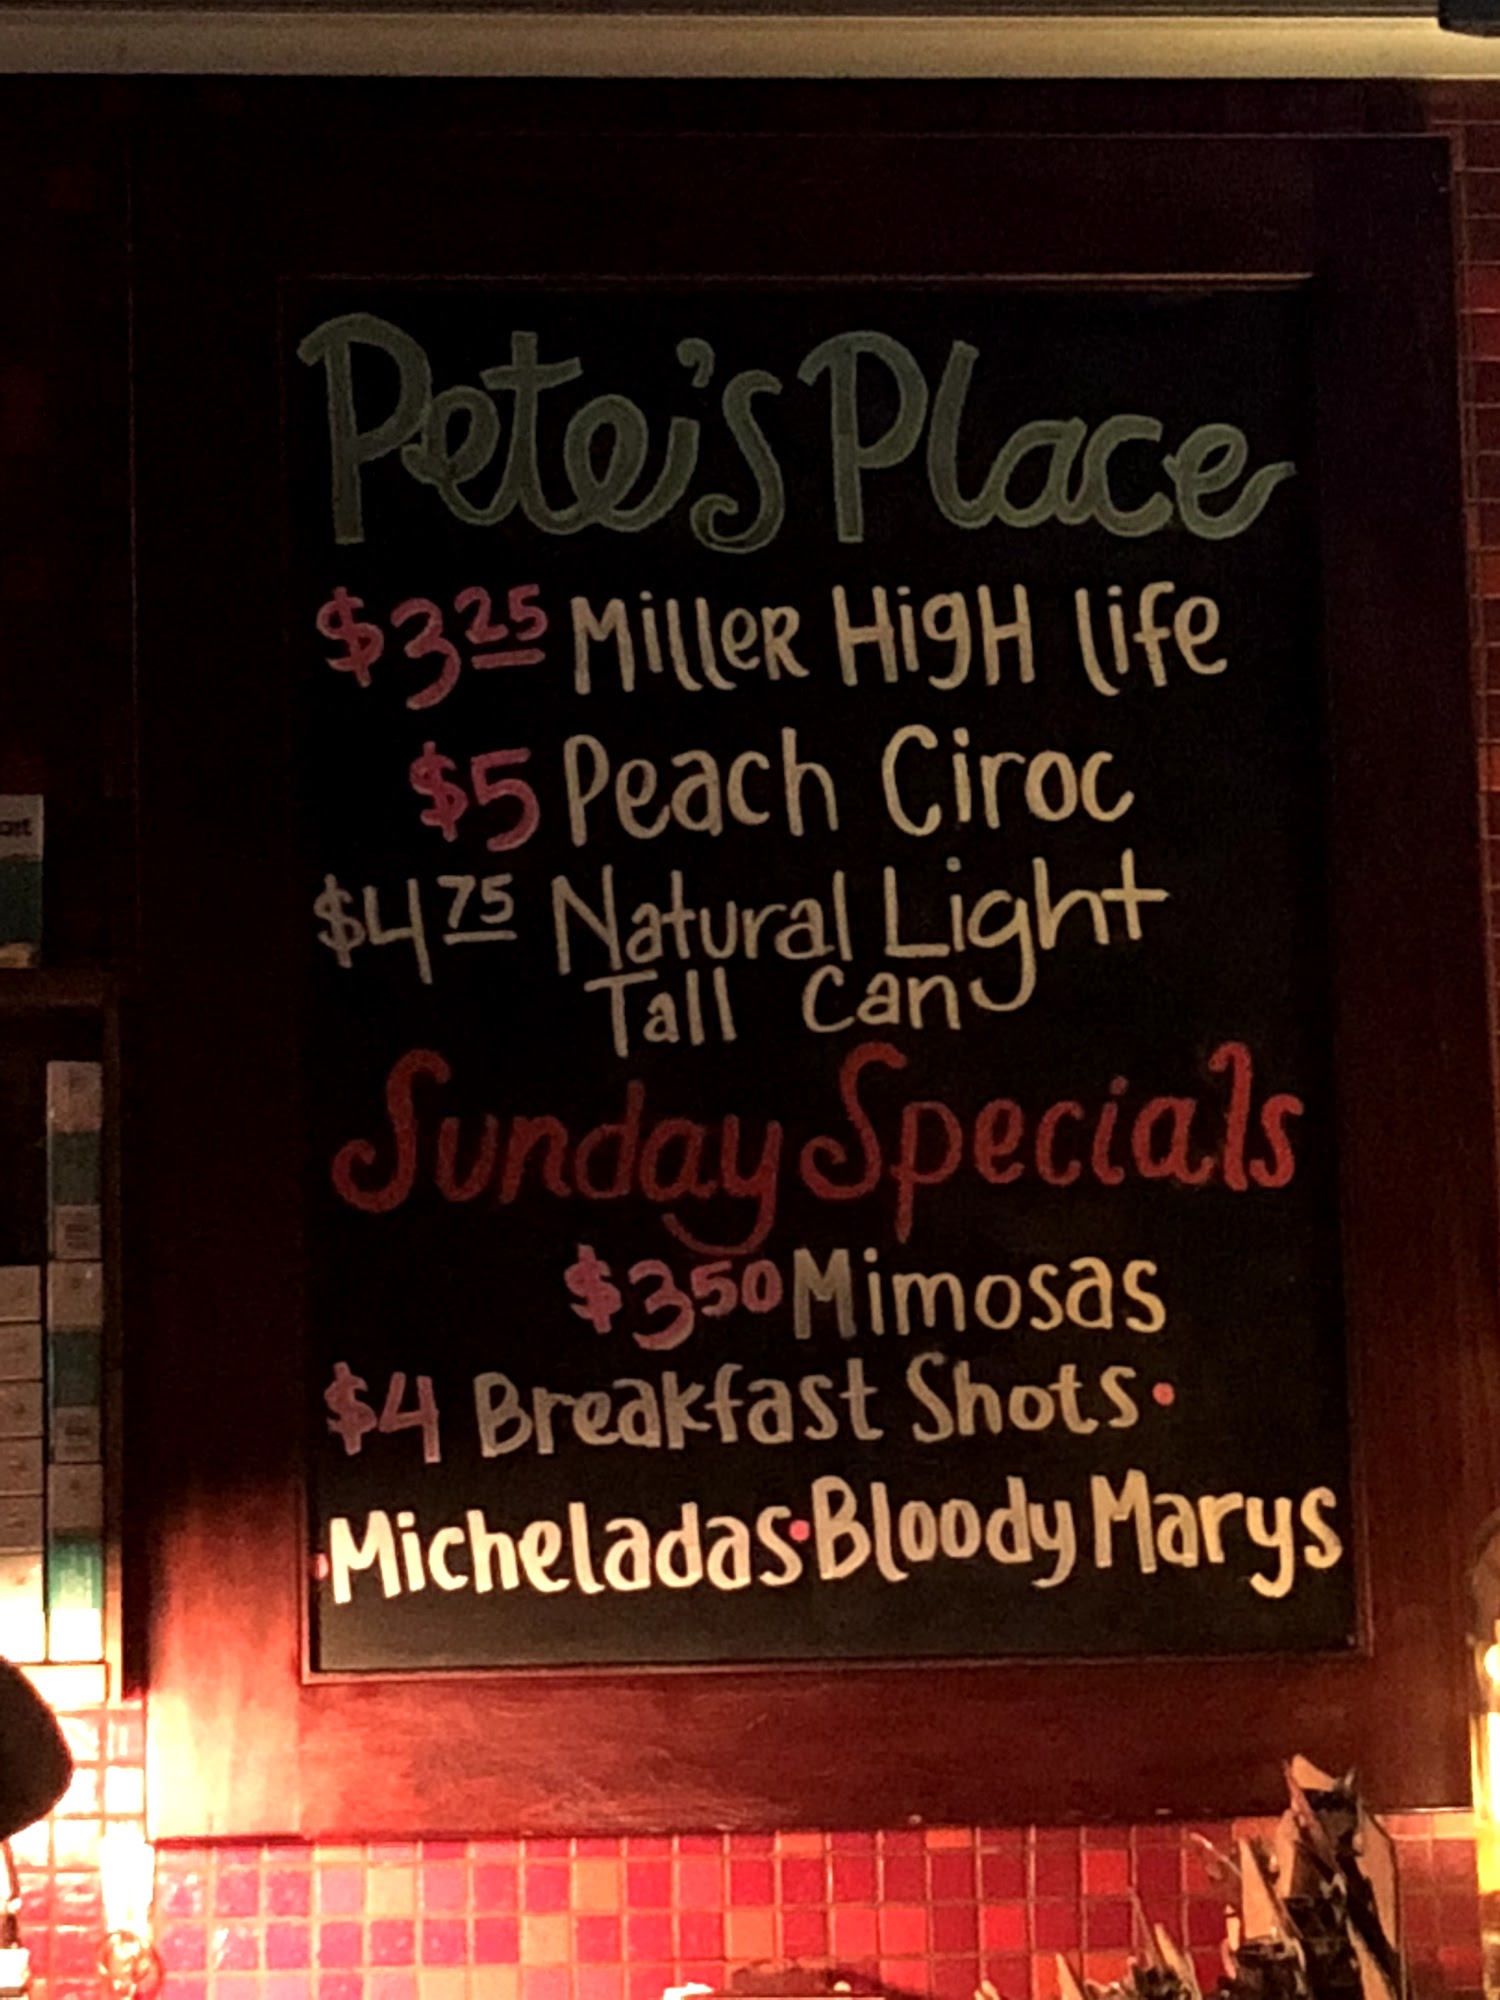 Pete's Place
$3.25 Miller High Life
$5 Peach Ciroc
$4.75 Natural Light
Tall Can
Sunday Specials
$3.50 Mimosas
$4 Breakfast Shots •
• Micheladas • Bloody Marys